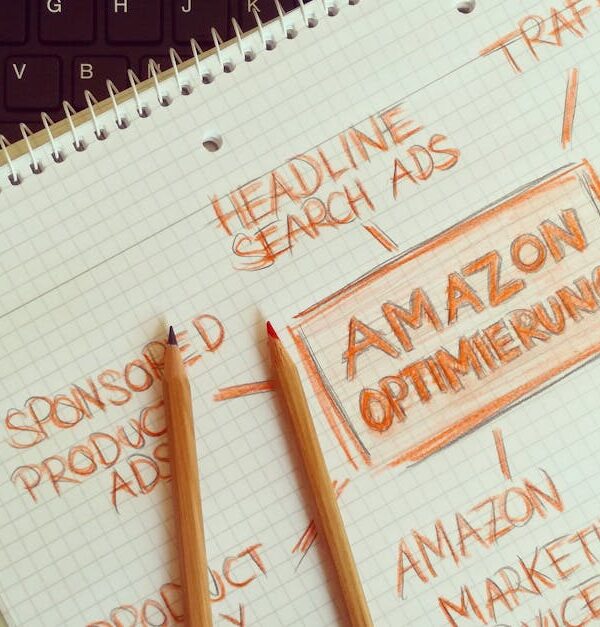 G H J K
V B N
TRAF
HEADLINE
SEARCH ADS
AMAZON
OPTIMIERUNG
SPONSORED
PRODUCT
ADS
AMAZON
MARKETI
PRODUCT